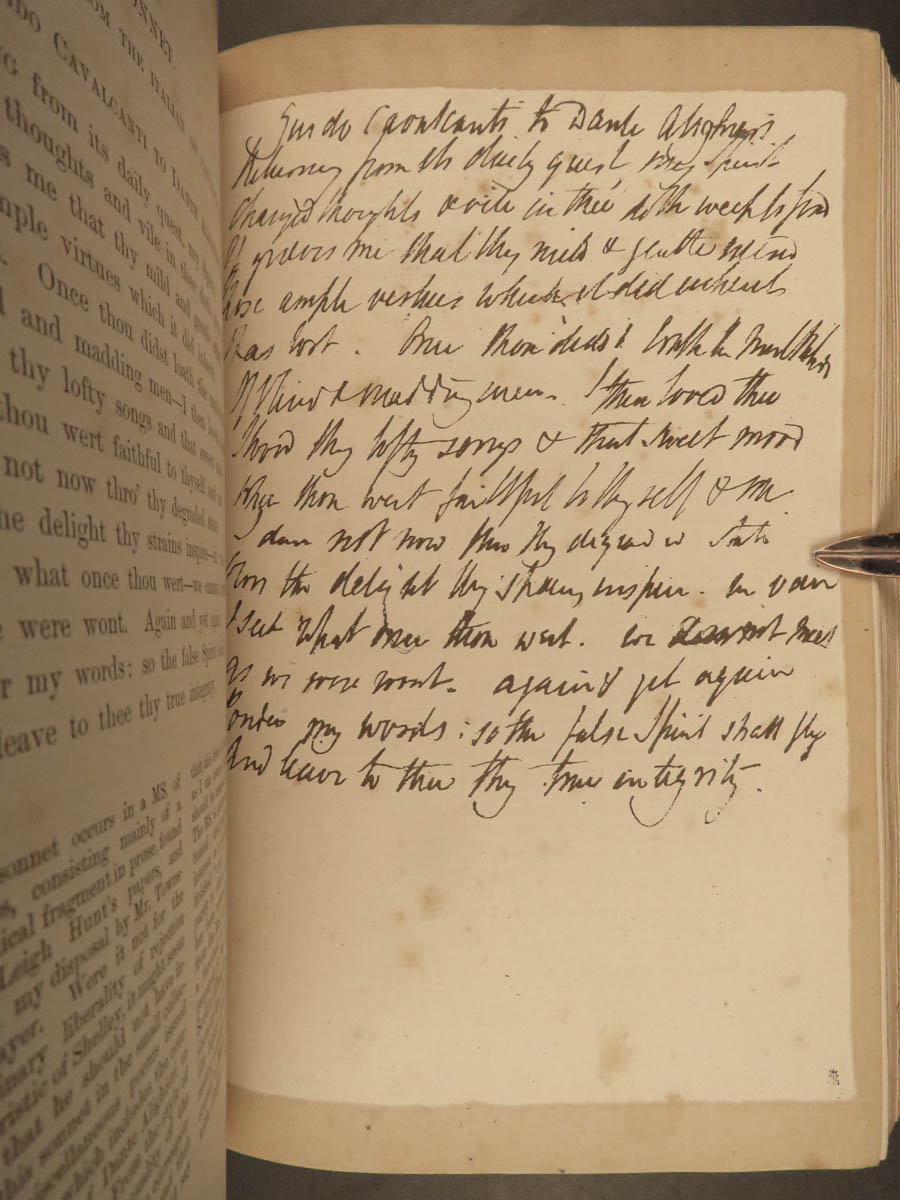 SONNET.
FROM THE ITALIAN OF
GUIDO CAVALCANTI TO DANTE
from its daily quest, my
thoughts and vile in thee doth
me that thy mild and gentle
ample virtues which it did inherit
Once thou didst loath the
and madding men—I then
thy lofty songs and that sweet
thou wert faithful to thyself and
not now thro' thy degraded state
the delight thy strains inspire—in
what once thou wert—we cannot
were wont. Again and yet again
my words: so the false Spirit shall
leave to thee thy true integrity.
sonnet occurs in a MS. of
consisting mainly of a
fragment in prose, found
Leigh Hunt's papers, and
my disposal by Mr. Towns-
Were it not for the
liberality of rejection
of Shelley, it might seem
that he should not have
this sonnet in the small
miscellaneous poems issued
which includes the
of Dante Alighieri to
From the
of the
Guido Cavalcanti to Dante Alighieri
Returning from its daily quest, my Spirit
Changed thoughts & vile in thee doth weep to find
It grieves me that thy mild & gentle mind
Those ample virtues which it did inherit
Has lost. Once thou didst loath the multitude
Of blind & madding men. I then loved thee
I loved thy lofty songs & that sweet mood
When thou wert faithful to thyself & me
I dare not now thro thy degraded state
Own the delight thy strains inspire. in vain
I seek what once thou wert. we cannot meet
As we were wont. again & yet again
Ponder my words: so the false Spirit shall fly
And leave to thee thy true integrity.